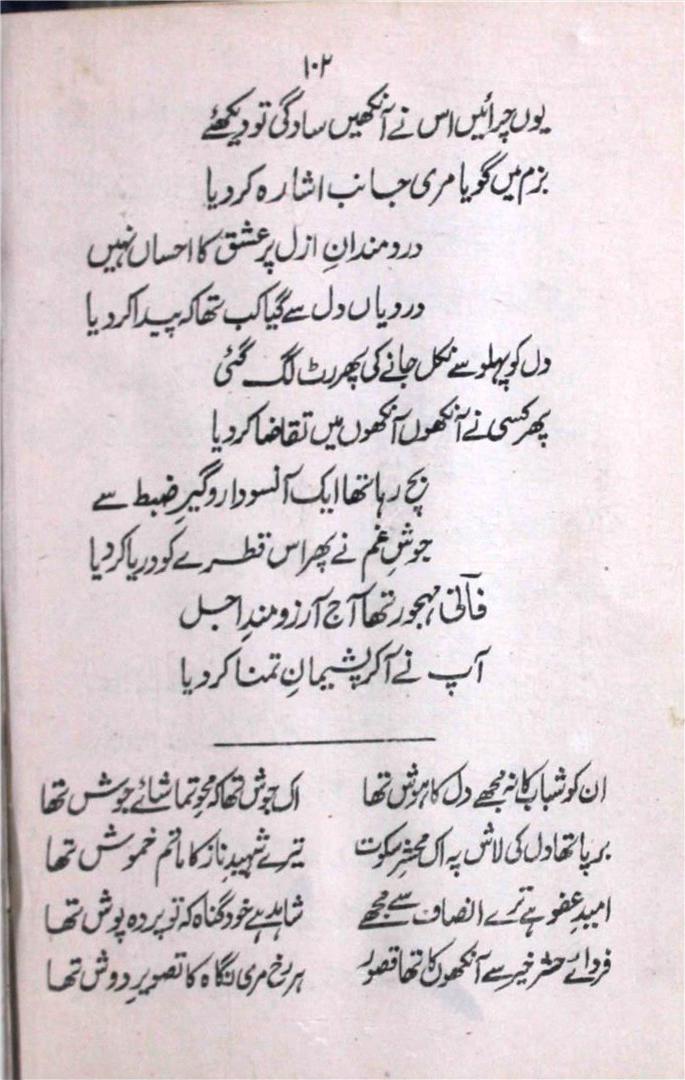 ۱۰۲
یوں چرائیں اس نے آنکھیں سادگی تو دیکھئے
بزم میں گویا مری جانب اشارہ کردیا
دردمندانِ ازل پر عشق کا احساں نہیں
درد یاں دل سے گیا کب تھا کہ پیدا کردیا
دل کو پہلو سے نکل جانے کی پھر رٹ لگ گئی
پھر کسی نے آنکھوں آنکھوں میں تقاضا کردیا
بچ رہا تھا ایک آنسو دار و گیرِ ضبط سے
جوشِ غم نے پھر اس قطرے کو دریا کردیا
فانؔی مہجور تھا آج آرزو مندِ اجل
آپ نے آکر پشیمانِ تمنا کردیا
ان کو شباب کا نہ مجھے دل کا ہوش تھا اک جوش تھا کہ محوِ تماشائے جوش تھا
برپا تھا دل کی لاش پہ اک محشرِ سکوت تیرے شہیدِ ناز کا ماتم خموش تھا
امیدِ عفو ہے ترے انصاف سے مجھے شاہد ہے خود گناہ کہ تو پردہ پوش تھا
فردائے حشر خیر سے آنکھوں کا تھا قصور ہر رخ مری نگاہ کا تصویرِ دوش تھا